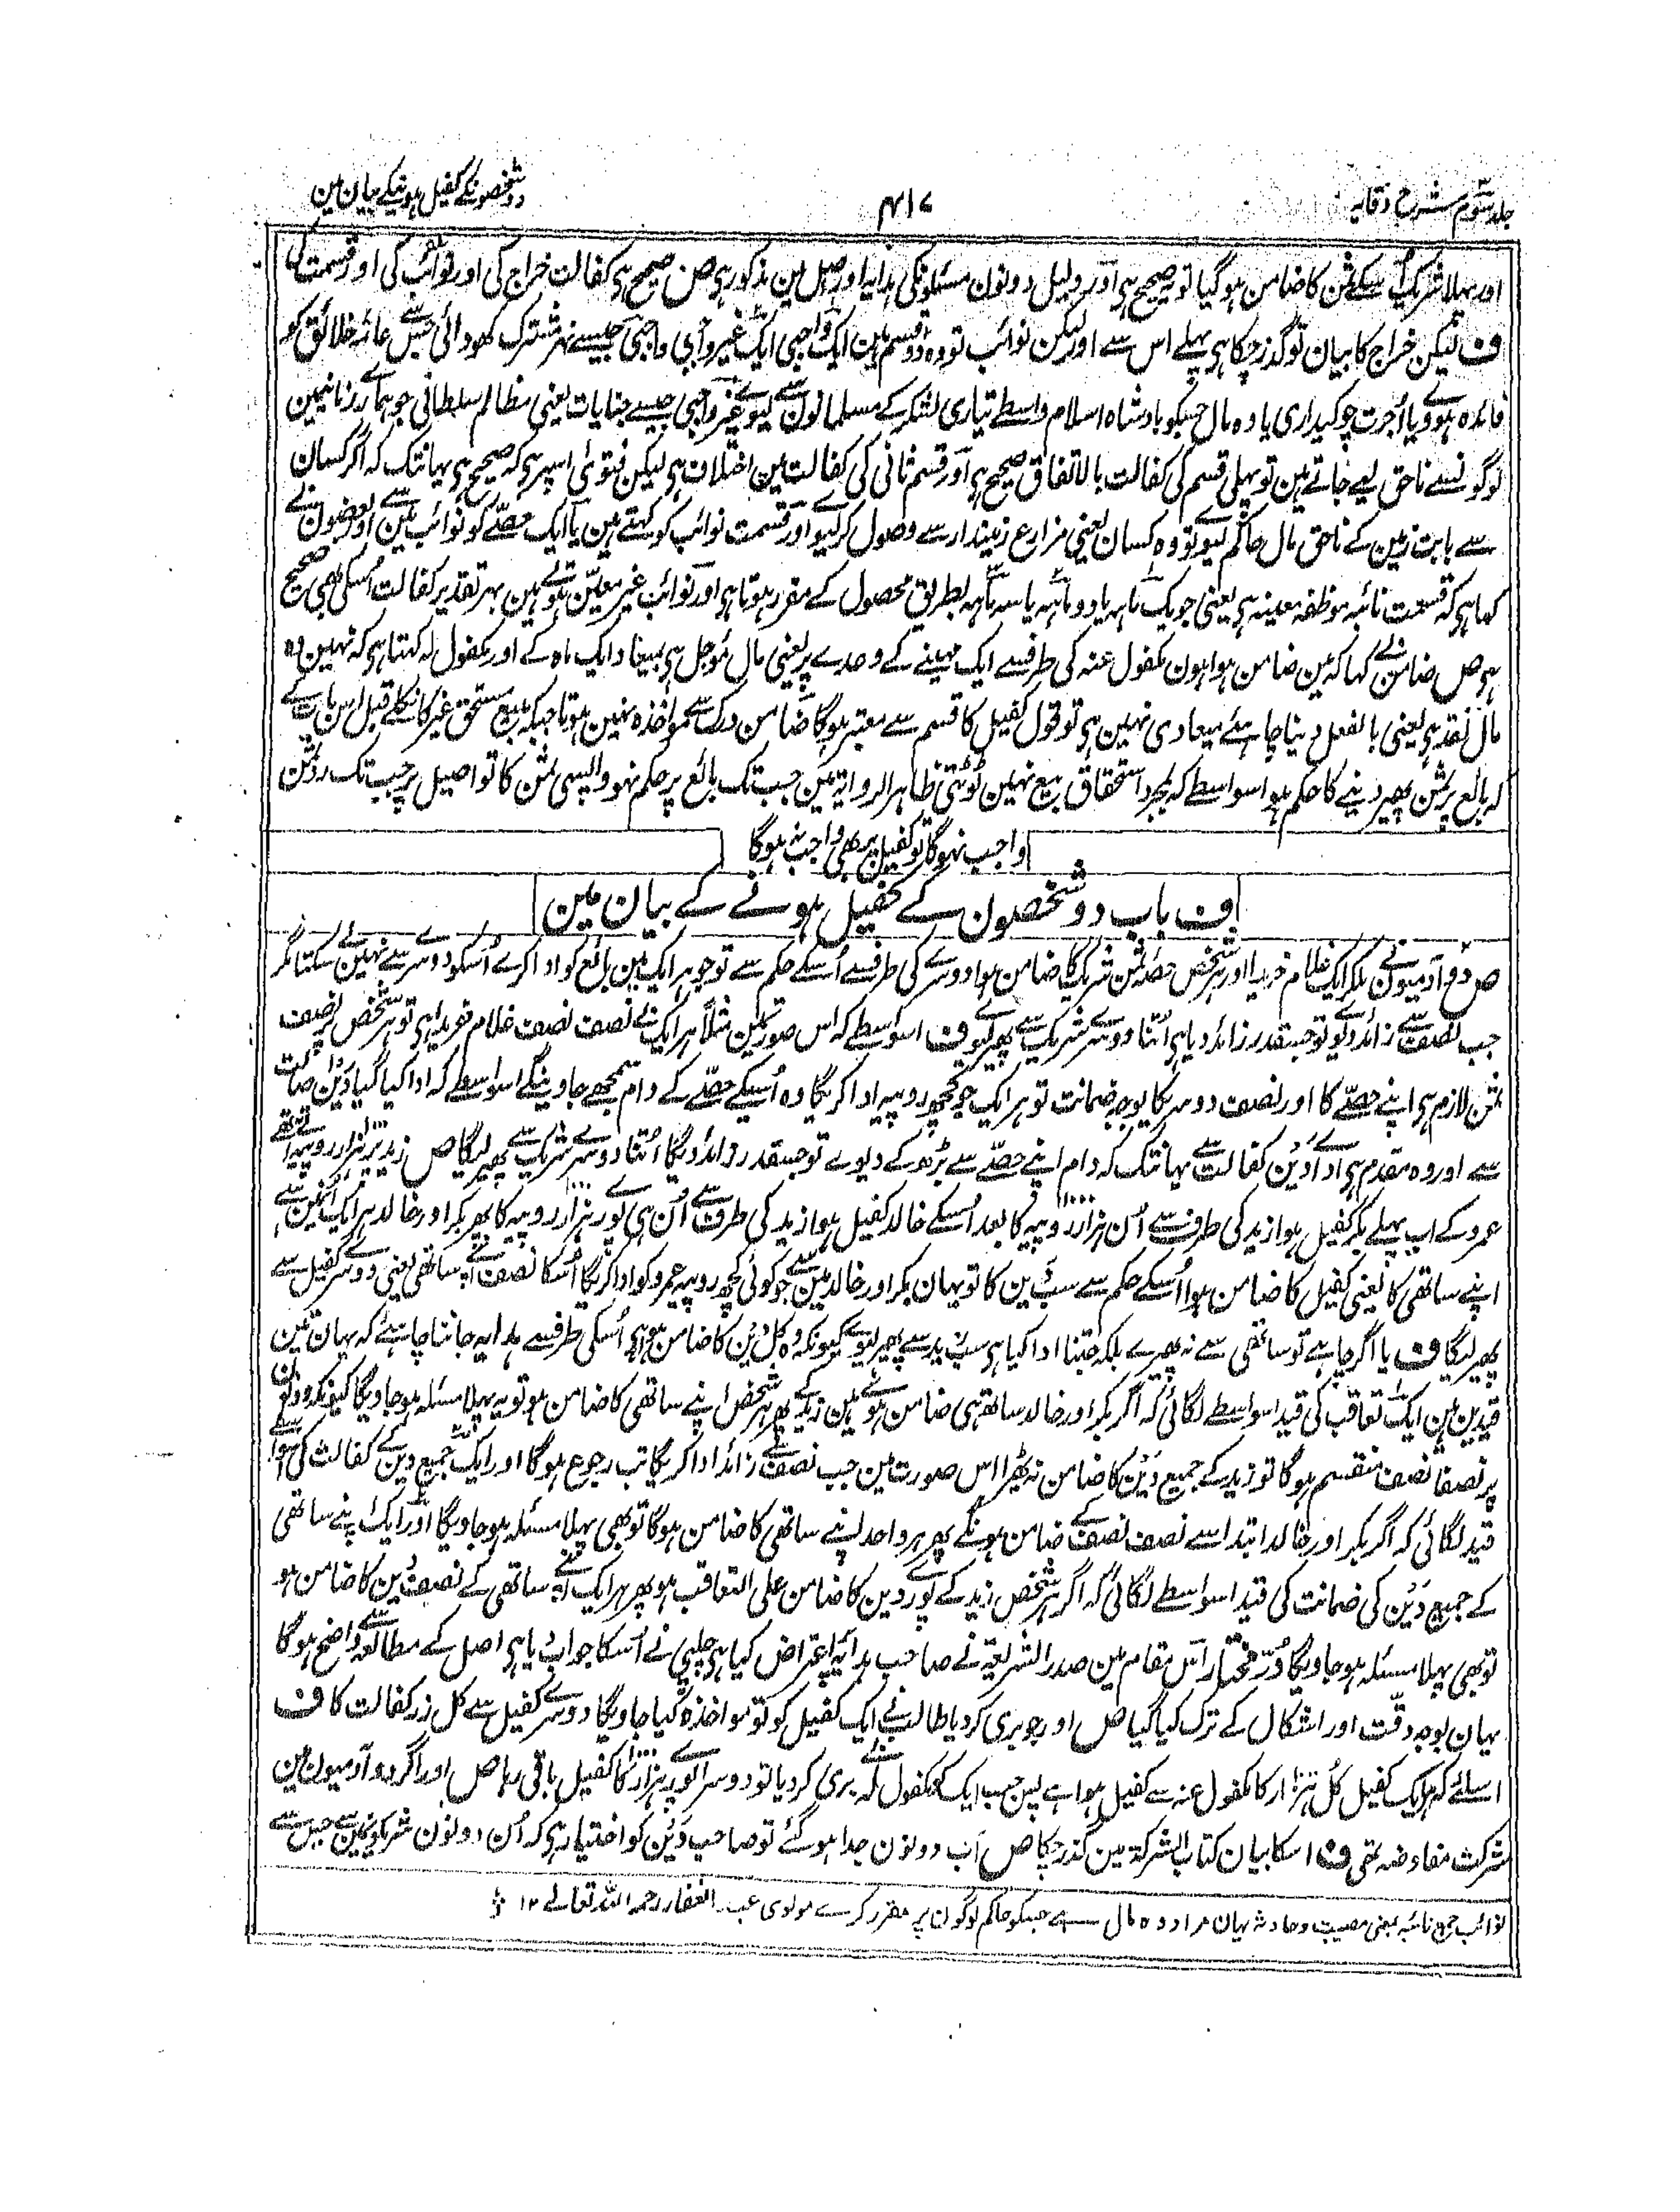 جلد سوم شرح وقایہ
۴۱۷
دو شخصونکے کفیل ہونیکے بیان مین
اور پہلا شریک اسکے ثمن کا ضامن ہوگیا تو صحیح ہی اور دلیل دونون مسئلونکی ہدایہ اور اصل مین مذکور ہی ص صحیح ہی کفالت خراج کی اور نوائب کی اور قسمت کی
ف لیکن خراج کا بیان تو گذر چکا ہی پہلے اس سے اور لیکن نوائب تو وہ دو قسم ہین ایک واجبی ایک غیر واجبی واجبی جیسے نہر مشترک کھودائی جس سے عامۂ خلائق کو
فائدہ ہووے یا اُجرت چوکیداری یا وہ مال جسکو بادشاہ اسلام واسطے تیاری لشکر کے مسلمانون سے لیوے غیر واجبی جیسے جنایات یعنی مظالم سلطانی جو ہمارے زمانہمین
لوگونسے ناحق لیے جاتے ہین تو پہلی قسم کی کفالت بالاتفاق صحیح ہی اور قسم ثانی کی کفالت مین اختلاف ہی لیکن فتویٰ اسپر ہی کہ صحیح ہی یہانتک کہ اگر کسان
سے بابت زمین کے ناحق مال حاکم لیوے تو وہ کسان یعنی مزارع زمیندار سے وصول کرلیوے اور قسمت نوائب کو کہتے ہین یا ایک حصّے کو نوائب مین سے اور بعضون نے
کہا ہی کہ قسمت نائبہ موظفہ معینہ ہی یعنی جو یک ماہہ یا دو ماہہ یا سہ ماہہ بطریق محصول کے مقرر ہوتا ہی اور نوائب غیر معیّن ہوتے ہین بہر تقدیر کفالت اُسکی بھی صحیح
ہی ص ضامن نے کہا کہ مین ضامن ہوا ہون مکفول عنہ کی طرفسے ایک مہینے کے وعدے پر یعنی مال مؤجل ہی بمیعاد ایک ماہ کے اور مکفول لہ کہتا ہی کہ نہین وہ
مال نقد ہی یعنی بالفعل دینا چاہئے میعادی نہین ہی تو قول کفیل کا قسم سے معتبر ہوگا ضامن درک سے مواخذہ نہین ہوتا جبکہ مبیع مستحق غیر کا نکلے قبل اس بات کے
کہ بائع پر ثمن پھیر دینے کا حکم ہو اسواسطے کہ بمجرد استحقاق بیع نہین ٹوٹتی ظاہر الروایۃ مین جب تک بائع پر حکم نہو واپسی ثمن کا تو اصیل پر جب تک رد ثمن
واجب نہوگا تو کفیل پر بھی واجب نہ ہوگا
ف باب دو شخصون کے کفیل ہونے کے بیان مین
ص دو آدمیون نے ملکر ایک غلام خریدا اور ہر شخص حصّۂ ثمن شریک کا ضامن ہوا دوسرے کی طرفسے اُسکے حکم سے تو جو ہر ایک مین بائع کو ادا کرے اُسکو دوسرے سے نہین لے سکتا مگر
جب نصف سے زائد دیوے تو جسقدر زائد دیا ہی اُتنا دوسرے شریک سے پھیر لیوے ف اسواسطے کہ اس صورتمین مثلاً ہر ایک نے نصف نصف غلام خریدا ہی تو ہر شخص پر نصف
ثمن لازم ہی اپنے حصّے کا اور نصف دوسریکا بوجہ ضمانت تو ہر ایک جو کچھ روپیہ ادا کریگا وہ اُسیکے حصّے کے دام سمجھے جاوینگے اسواسطے کہ ادا کیا گیا دَین اصالت
سے اور وہ مقدم ہی ادائے دَین کفالت سے یہانتک کہ دام اپنے حصّے سے بڑھ کے دیوے تو جسقدر زائد دیگا اُتنا دوسرے شریک سے پھیر لیگا ص زید پر ہزار روپیہ آتے تھے
عمرو کے اب پہلے بکر کفیل ہوا زید کی طرف سے اُن ہزار روپیہ کا بعد اُسکے خالد کفیل ہوا زید کی طرف سے اُن ہی پورے ہزار روپیہ کا پھر بکر اور خالد ہر ایک اُنمین سے
اپنے ساتھی کا یعنی کفیل کا ضامن ہوا اُسکے حکم سے سب دَین کا تو یہان بکر اور خالد مین سے جو کوئی کچھ روپیہ عمرو کو ادا کریگا اُسکا نصف اپنے ساتھی یعنی دوسرے کفیل سے
پھیر لیگا ف یا اگر چاہے تو ساتھی سے نہ پھیرے بلکہ جتنا ادا کیا ہی سب زید سے پھیر لیوے کیونکہ وہ کل دَین کا ضامن ہوا ہی اُسکی طرفسے ہدایہ جاننا چاہئے کہ یہان تین
قیدین ہین ایک تعاقب کی قید اسواسطے لگائی کہ اگر بکر اور خالد ساتھ ہی ضامن ہوئے ہین زید کے پھر ہر شخص اپنے ساتھی کا ضامن ہو تو یہ پہلا مسئلہ ہوجاویگا کیونکہ دَین دونون
پر نصفا نصف منقسم ہوگا تو زید کے جمیع دَین کا ضامن نہ ٹھرا اس صورت مین جب نصف سے زائد ادا کریگا تب رجوع ہوگا اور ایک جمیع دین کے کفالت کی اسواسطے
قید لگائی کہ اگر بکر اور خالد ابتدا سے نصف نصف کے ضامن ہونگے پھر ہر واحد اپنے ساتھی کا ضامن ہوگا تو بھی پہلا مسئلہ ہوجاویگا اور ایک اپنے ساتھی
کے جمیع دَین کی ضمانت کی قید اسواسطے لگائی کہ اگر ہر شخص زید کے پورے دین کا ضامن علی التعاقب ہو پھر ہر ایک اپنے ساتھی کے نصف دَین کا ضامن ہو
تو بھی پہلا مسئلہ ہوجاویگا دُرّ مختار اس مقام مین صدر الشریعۃ نے صاحب ہدایہ پر اعتراض کیا ہی چلپی نے اُسکا جواب دیا ہی اصل کے مطالعہ سے واضح ہوگا
یہان بوجہ دقّت اور اشکال کے ترک کیا گیا ص اور جو بری کردیا طالب نے ایک کفیل کو تو مواخذہ کیا جاویگا دوسرے کفیل سے کل زر کفالت کا ف
اسلئے کہ ہر ایک کفیل کل ہزار کا مکفول عنہ سے کفیل ہوا ہے پس جب ایک کو مکفول لہ نے بری کردیا تو دوسرا پورے ہزار کا کفیل باقی رہا ص اور اگر دو آدمیون مین
شرکت مفاوضہ تھی ف اسکا بیان کتاب الشرکۃ مین گذر چکا ص اَب دونون جدا ہوگئے تو صاحب دَین کو اختیار ہی کہ اُن دونون شریکونمین سے جس سے
نوائب جمع نائبہ بمعنی مصیبت و حادثہ یہان مراد وہ مال ہے جسکو حاکم لوگون پر مقرر کرے مولوی عبد الغفار رحمہ اللہ تعالے ۱۲